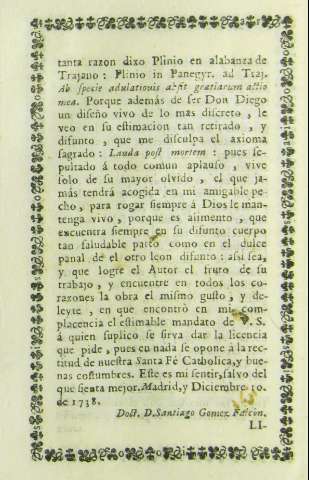 tanta razon dixo Plinio en alabanza de
Trajano : Plinio in Panegyr. ad Traj.
Ab specie adulationis absit gratiarum actio
mea. Porque además de ser Don Diego
un diseño vivo de lo mas discreto , le
veo en su estimacion tan retirado , y
difunto , que me disculpa el axioma
sagrado : Lauda post mortem : pues se-
pultado á todo comun aplauso , vive
solo de su mayor olvido , el que ja-
más tendrá acogida en mi amigable pe-
cho , para rogar siempre á Dios le man-
tenga vivo , porque es alimento , que
encuentra siempre en su difunto cuerpo
tan saludable pasto como en el dulce
panal de el otro leon difunto : asi sea,
y que logre el Autor el fruto de su
trabajo , y encuentre en todos los co-
razones la obra el mismo gusto , y de-
leyte , en que encontrò en mi com-
placencia el estimable mandato de V. S.
á quien suplico se sirva dar la licencia
que pide , pues en nada se opone á la rec-
titud de nuestra Santa Fé Catholica, y bue-
nas costumbres. Este es mi sentir, salvo del
que sienta mejor. Madrid, y Diciembre 10.
de 1738.
Doct. D. Santiago Gomez Falcòn.
LI-